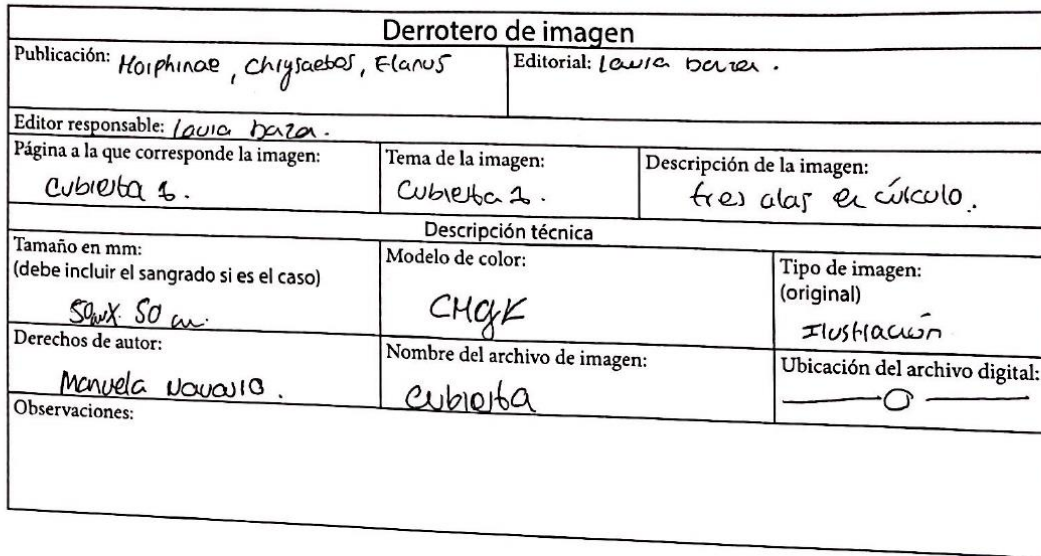 Derrotero de imagen
Publicación: Horphinae, Chrysaebos, Elanus
Editorial: Laura baza.
Editor responsable: laura baza.
Página a la que corresponde la imagen:
Cubierta 1.
Tema de la imagen:
Cubierta 1.
Descripción de la imagen:
tres alas en círculo.
Descripción técnica
Tamaño en mm:
(debe incluir el sangrado si es el caso)
50 cm X 50 cm.
Modelo de color:
CMYK
Tipo de imagen:
(original)
Ilustración
Derechos de autor:
Manuela Navarro.
Nombre del archivo de imagen:
Cubierta
Ubicación del archivo digital:
Observaciones: